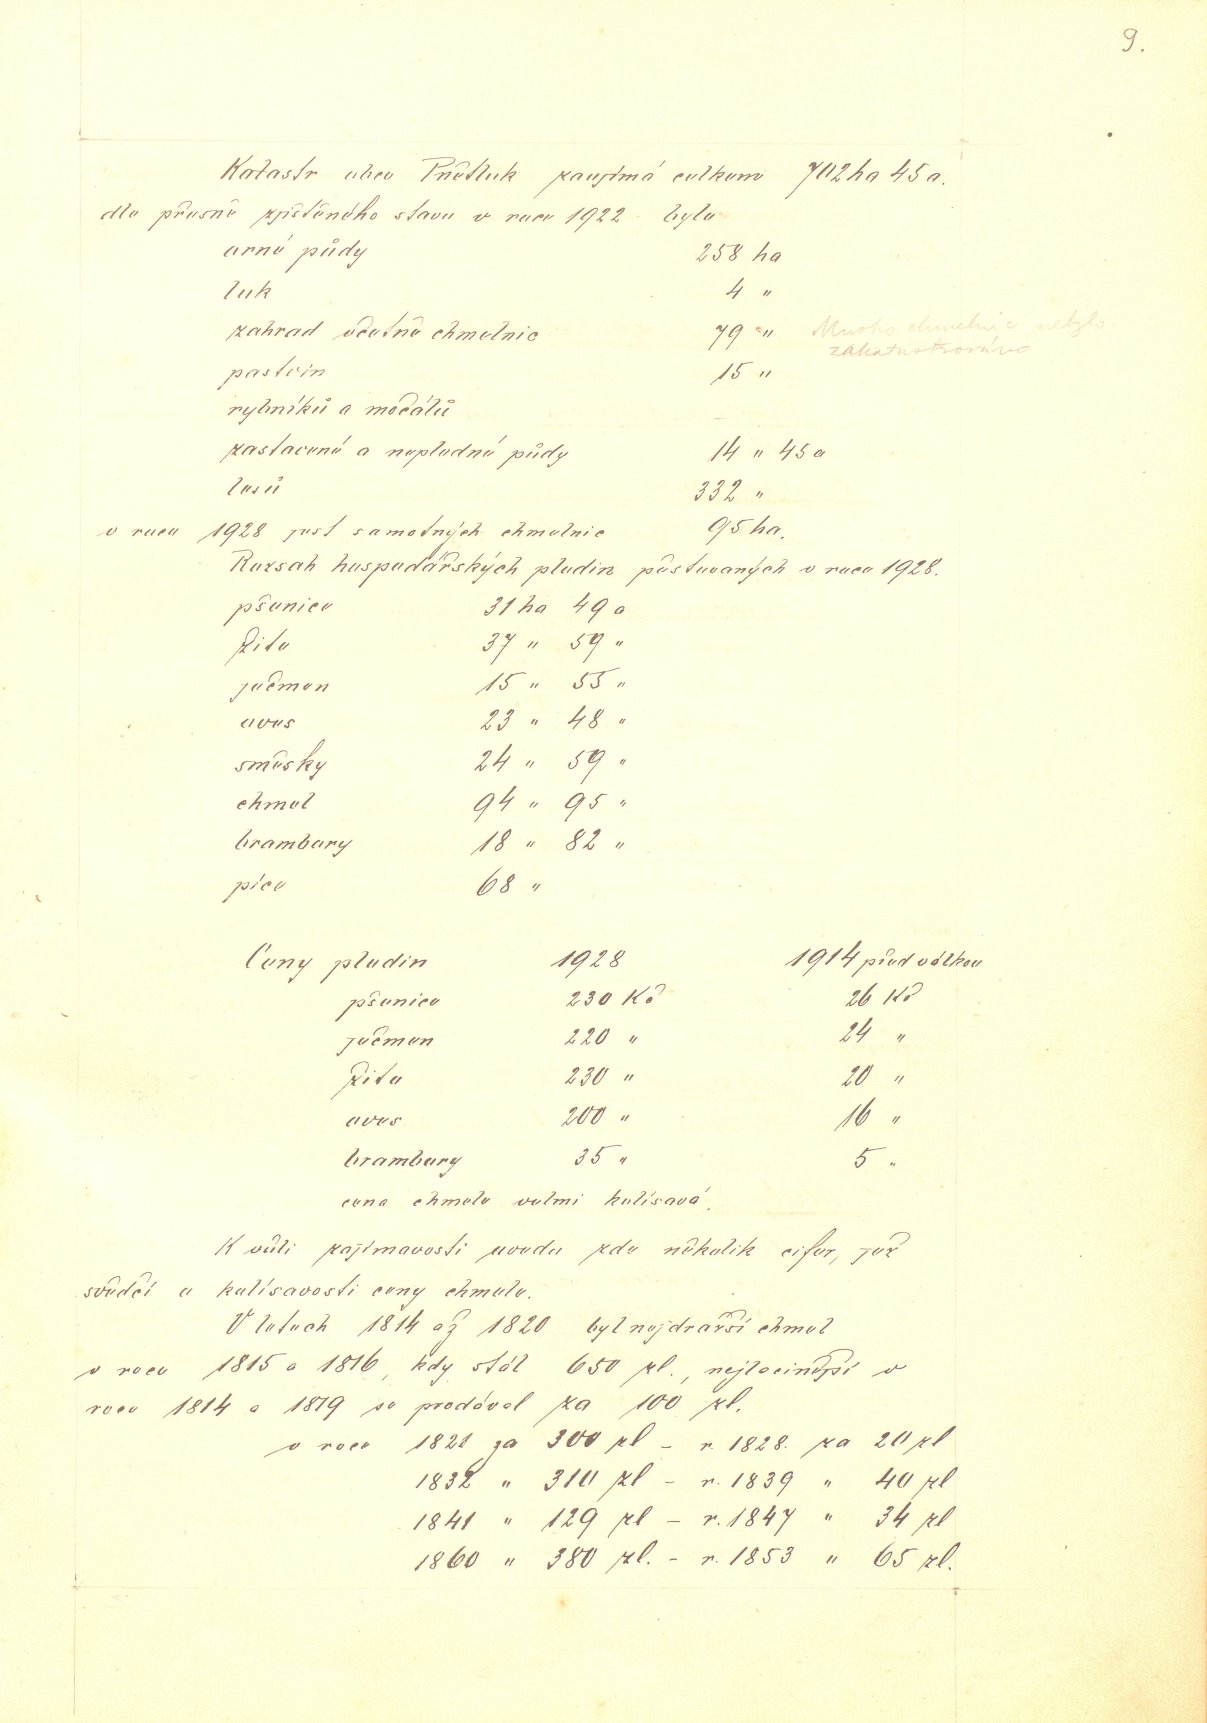 9.
Katastr obce Přátluk zaujímá celkem 702 ha 45 a.
dle přesně zjištěného stavu v roce 1922 bylo
orné půdy 258 ha
luk 4 "
zahrad včetně chmelnic 79 " Mnoho chmelnic nebylo
zakatastrováno
pastvin 15 "
rybníků a močálů
zastavené a neplodné půdy 14 " 45 a
lesů 332 "
v roce 1928 jest samotných chmelnic 95 ha.
Rozsah hospodářských plodin pěstovaných v roce 1928.
pšenice 31 ha 49 a
žito 37 " 59 "
ječmen 15 " 55 "
oves 23 " 48 "
směsky 24 " 59 "
chmel 94 " 95 "
brambory 18 " 82 "
píce 68 "
Ceny plodin 1928 1914 před válkou
pšenice 230 Kč 26 Kč
ječmen 220 " 24 "
žito 230 " 20 "
oves 200 " 16 "
brambory 35 " 5 "
cena chmele velmi kolísavá.
K vůli zajímavosti uvedu zde několik cifer, jež
svědčí o kolísavosti ceny chmele.
V letech 1814 až 1820 byl nejdražší chmel
v roce 1815 a 1816, kdy stál 650 zl., nejlacinější v
roce 1814 a 1819 se prodával za 100 zl.
v roce 1821 za 300 zl - r. 1828. za 20 zl
1832 " 310 zl - r. 1839 " 40 zl
1841 " 129 zl - r. 1847 " 34 zl
1860 " 380 zl. - r. 1853 " 65 zl.